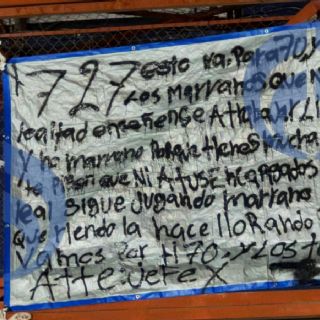 727 esto va. Para 70, y
Los Marranos que N
lealtad enseñense A
y no marrano Porque tienes mucha
que Ni A tu
sigue jugando marrano
Que riendo la hace llorando
Vamos Por ti 70. y Los
Atte: Jefe X